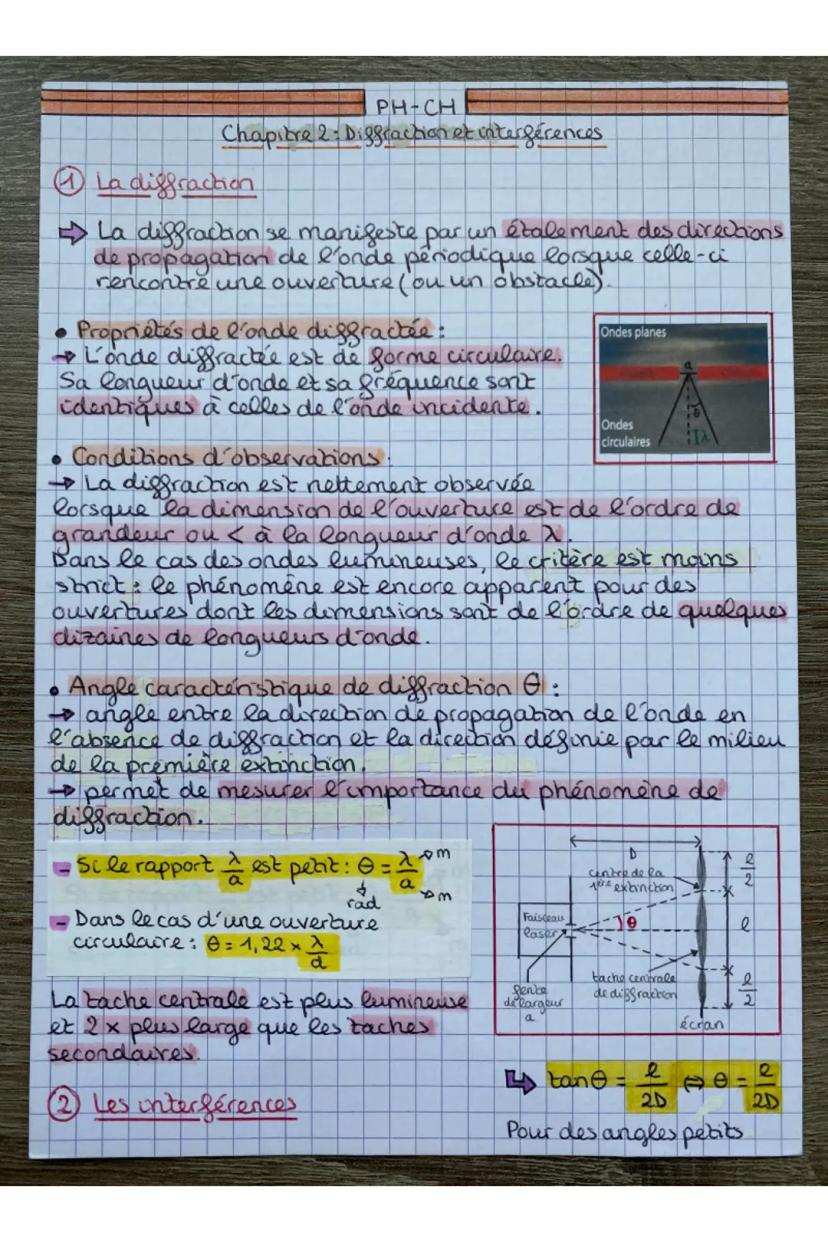 PH-CH
Chapitre 2 : Diffraction et interférences
① La diffraction
⇨ La diffraction se manifeste par un étalement des directions
de propagation de l'onde périodique lorsque celle-ci
rencontre une ouverture (ou un obstacle).
• Propriétés de l'onde diffractée :
→ L'onde diffractée est de forme circulaire.
Sa longueur d'onde et sa fréquence sont
identiques à celles de l'onde incidente.
Ondes planes
a
θ
Ondes
circulaires
λ
• Conditions d'observations :
→ La diffraction est nettement observée
lorsque la dimension de l'ouverture est de l'ordre de
grandeur ou < à la longueur d'onde λ.
Dans le cas des ondes lumineuses, le critère est moins
strict : le phénomène est encore apparent pour des
ouvertures dont les dimensions sont de l'ordre de quelques
dizaines de longueurs d'onde.
• Angle caractéristique de diffraction θ :
→ angle entre la direction de propagation de l'onde en
l'absence de diffraction et la direction définie par le milieu
de la première extinction.
→ permet de mesurer l'importance du phénomène de
diffraction.
- Si le rapport λ/a est petit : θ = λ/a
m
rad
m
- Dans le cas d'une ouverture
circulaire : θ = 1,22 × λ/d
La tache centrale est plus lumineuse
et 2 x plus large que les taches
secondaires.
D
centre de la
1ère extinction
Faisceau
laser
θ
fente
de largeur
a
tache centrale
de diffraction
écran
l/2
l
l/2
↳ tan θ = l/2D ⇔ θ = l/2D
Pour des angles petits
② Les interférences